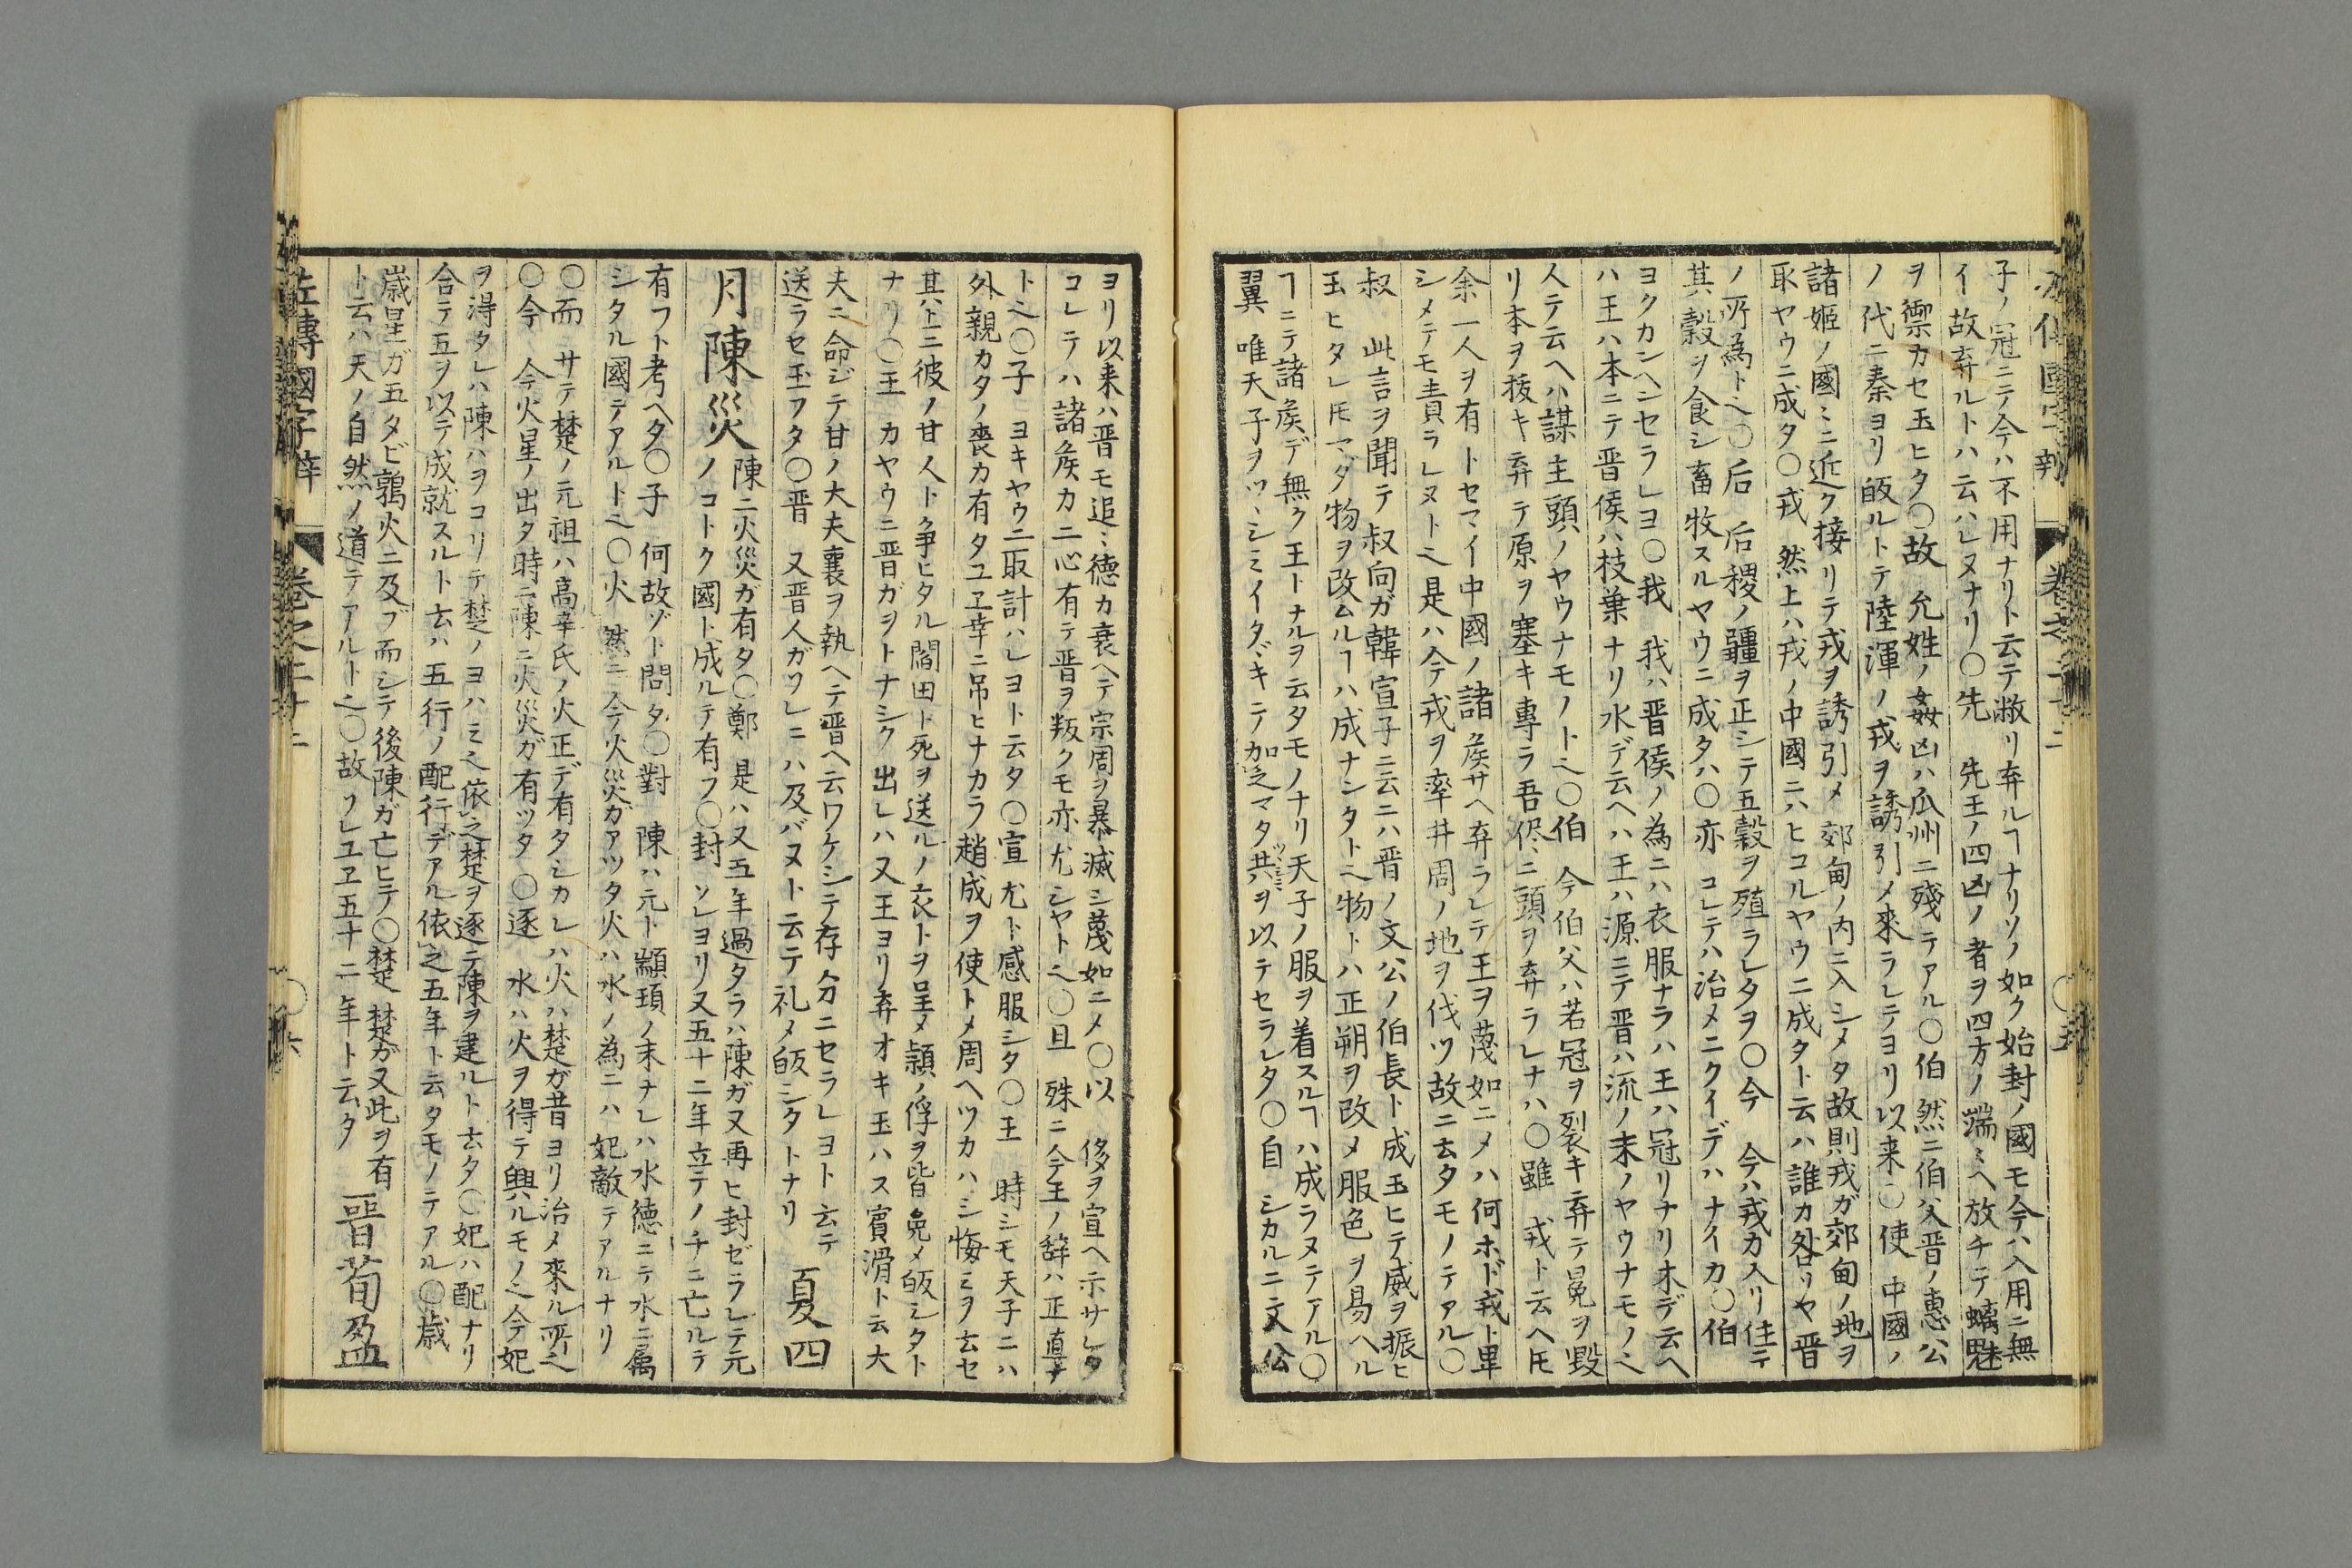 子ノ冠ニテ今ハ不用ナリト云テ敝リ弃ルヿナリソノ如ク始封ノ國モ今ハ入用ニ無
イ故弃ルトハ云ハレヌナリ〇先 先王ノ四凶ノ者ヲ四方ノ端〻ヘ放チテ螭魅
ヲ禦カセ玉ヒタ〇故 允姓ノ姦凶ハ瓜州ニ残テアル〇伯 然ニ伯父晋ノ惠公
ノ代ニ秦ヨリ皈ルトテ陸渾ノ戎ヲ誘引メ來ラレテヨリ以来〇使 中國ノ
諸姬ノ國〻ニ近ク接リテ戎ヲ誘引メ 郊甸ノ内ニ入シメタ故則戎ガ郊甸ノ地ヲ
取ヤウニ成タ〇戎 然上ハ戎ノ中國ニハヒコルヤウニ成タト云ハ誰カ咎リヤ晋
ノ所為ト〻〇后 后稷ノ疆ヲ正シテ五穀ヲ殖ラレタヲ〇今 今ハ戎カ入リ住テ
其穀ヲ食シ畜牧スルヤウニ成タハ〇亦 コレテハ治メニクイデハナイカ〇伯
ヨクカンヘンセラレヨ〇我 我ハ晋侯ノ為ニハ衣服ナラハ王ハ冠リナリ木デ云ヘ
ハ王ハ本ニテ晋侯ハ枝葉ナリ水デ云ヘハ王ハ源ニテ晋ハ流ノ末ノヤウナモノ〻
人テ云ヘハ謀主頭ノヤウナモノト〻〇伯 今伯父ハ若冠ヲ裂キ弃テ冕ヲ毀
リ本ヲ抜キ弃テ原ヲ塞キ專ラ吾侭ニ頭ヲ弃ラレナハ〇雖 戎ト云ヘ𪜈
余一人ヲ有トセマイ中國ノ諸侯サヘ弃ラレテ王ヲ蔑如ニメハ何ホド戎ト畢
シメテモ責ラレヌト〻是ハ今戎ヲ率井周ノ地ヲ伐ツ故ニ云タモノテアル〇
叔 此言ヲ聞テ叔向ガ韓宣子ニ云ニハ晋ノ文公ノ伯長ト成玉ヒテ威ヲ振ヒ
玉ヒタレ𪜈マダ物ヲ改ムルヿハ成ナンタト〻物トハ正朔ヲ改メ服色ヲ易ヘル
ヿニテ諸侯デ無ク王トナルヲ云タモノナリ天子ノ服ヲ着スルヿハ成ラヌテアル〇
翼 唯天子ヲツ丶シミイタヾキテ加之マタ共ヲ以テセラレタ〇自 シカルニ文公
ヨリ以来ハ晋モ追〻徳カ衰ヘテ宗周ヲ暴滅シ蔑如ニメ〇以 侈ヲ宣ヘ示サレタ
コレテハ諸侯カ二心有テ晋ヲ叛クモ亦尤シヤト〻〇且 殊ニ今王ノ辞ハ正直ナ
ト〻〇子 ヨキヤウニ取計ハレヨト云タ〇宣 尤ト感服シタ〇王 時シモ天子ニハ
外親カタノ喪カ有タユヱ幸ニ吊ヒナカラ趙成ヲ使トメ周ヘツカハシ悔ミヲ云セ
其ハトニ彼ノ甘人ト争ヒタル閻田ト死ヲ送ルノ衣トヲ呈メ頴ノ俘ヲ皆免メ皈シタト
ナリ〇王 カヤウニ晋ガヲトナシク出レハ又王ヨリ弃オキ玉ハス賓滑ト云大
夫ニ命ジテ甘ノ大夫襄ヲ執ヘテ晋ヘ云ワケシテ存分ニセラレヨト云テ
送ラセ玉フタ〇晋 又晋人ガソレニハ及バヌト云テ礼メ皈シタトナリ 夏四
月陳災 陳ニ火災ガ有タ〇鄭 是ハ又五年過タラハ陳ガ又再ヒ封ゼラレテ元
ノコトク國ト成ルテ有フ〇封 ソレヨリ又五十二年立テノチニ亡ルテ
有フト考ヘタ〇子 何故ゾト問タ〇對 陳ハ元ト顓頊ノ末ナレハ水徳ニテ水ニ属
シタル國テアルト〻〇火 然ニ今火災ガアツタ火ハ水ノ為ニハ妃敵テアルナリ
〇而 サテ楚ノ元祖ハ高辛氏ノ火正デ有タシカレハ火ハ楚ガ昔ヨリ治メ來ル所〻
〇今 今火星ノ出タ時ニ陳ニ火災ガ有ツタ〇逐 水ハ火ヲ得テ興ルモノ〻今妃
ヲ得タレハ陳ハヲコリテ楚ノヨハミ〻依之楚ヲ逐テ陳ヲ建ルト云タ〇妃ハ配ナリ
合テ五ヲ以テ成就スルト云ハ五行ノ配行デアル依之五年ト云タモノテアル〇歳
歳星ガ五タビ鶉火ニ及ブ而シテ後陳ガ亡ヒテ〇楚 楚ガ又此ヲ有
ト云ハ天ノ自然ノ道テアルト〻〇故ソレユヱ五十二年ト云タ 晋荀盈
左傳國字辯 卷之二十二 〇六